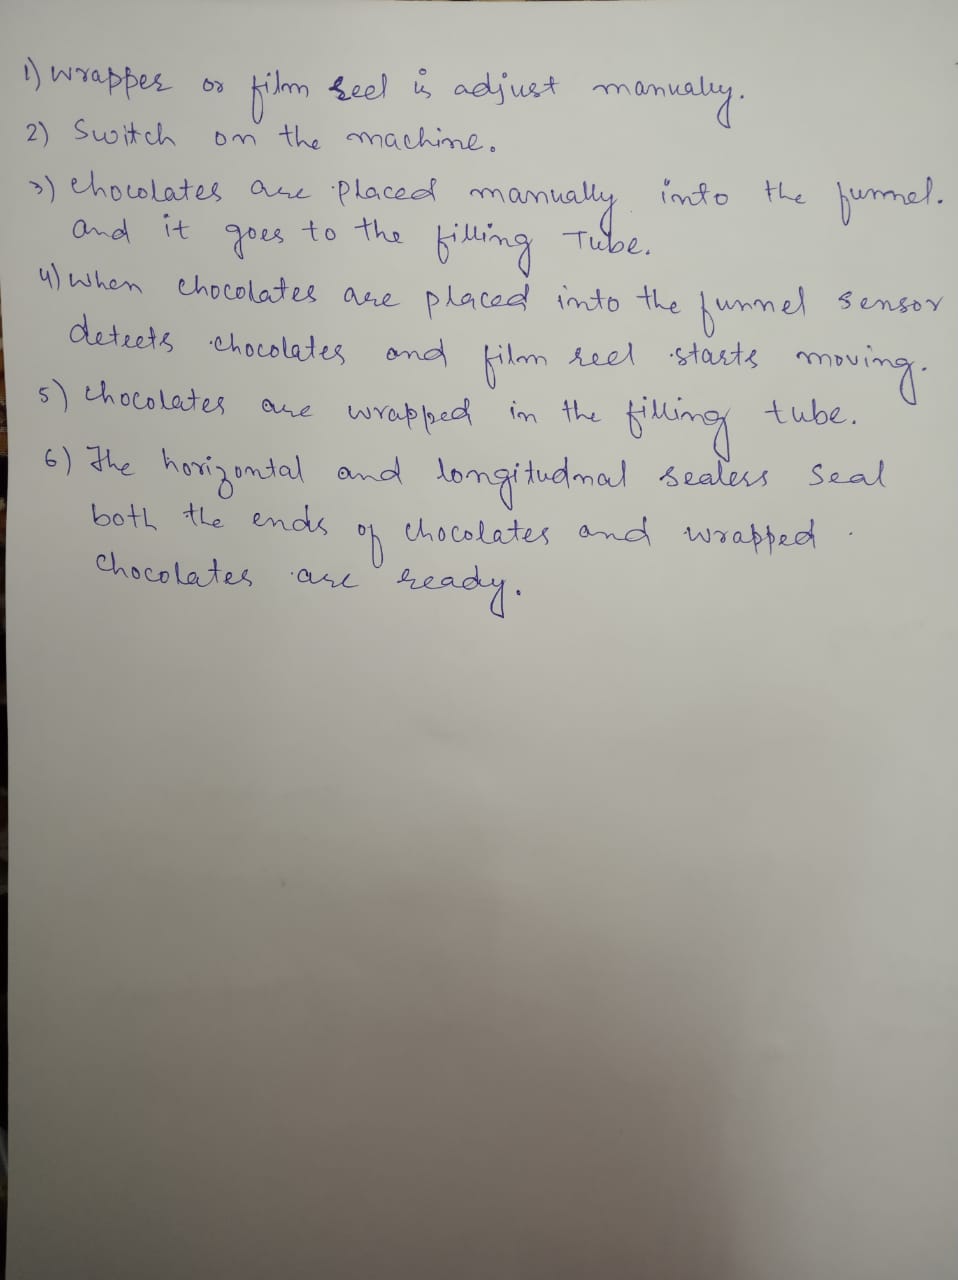 1) Wrapper or film reel is adjust manually.
2) Switch on the machine.
3) chocolates are placed manually into the funnel.
and it goes to the filling Tube.
4) When chocolates are placed into the funnel sensor
detects chocolates and film reel starts moving.
5) chocolates are wrapped in the filling tube.
6) The horizontal and longitudnal sealess seal
both the ends of chocolates and wrapped
chocolates are ready.